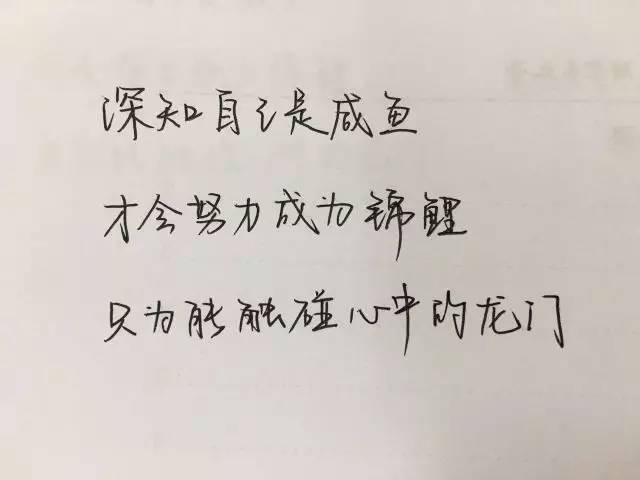 深知自己是咸鱼
才会努力成为锦鲤
只为能触碰心中的龙门